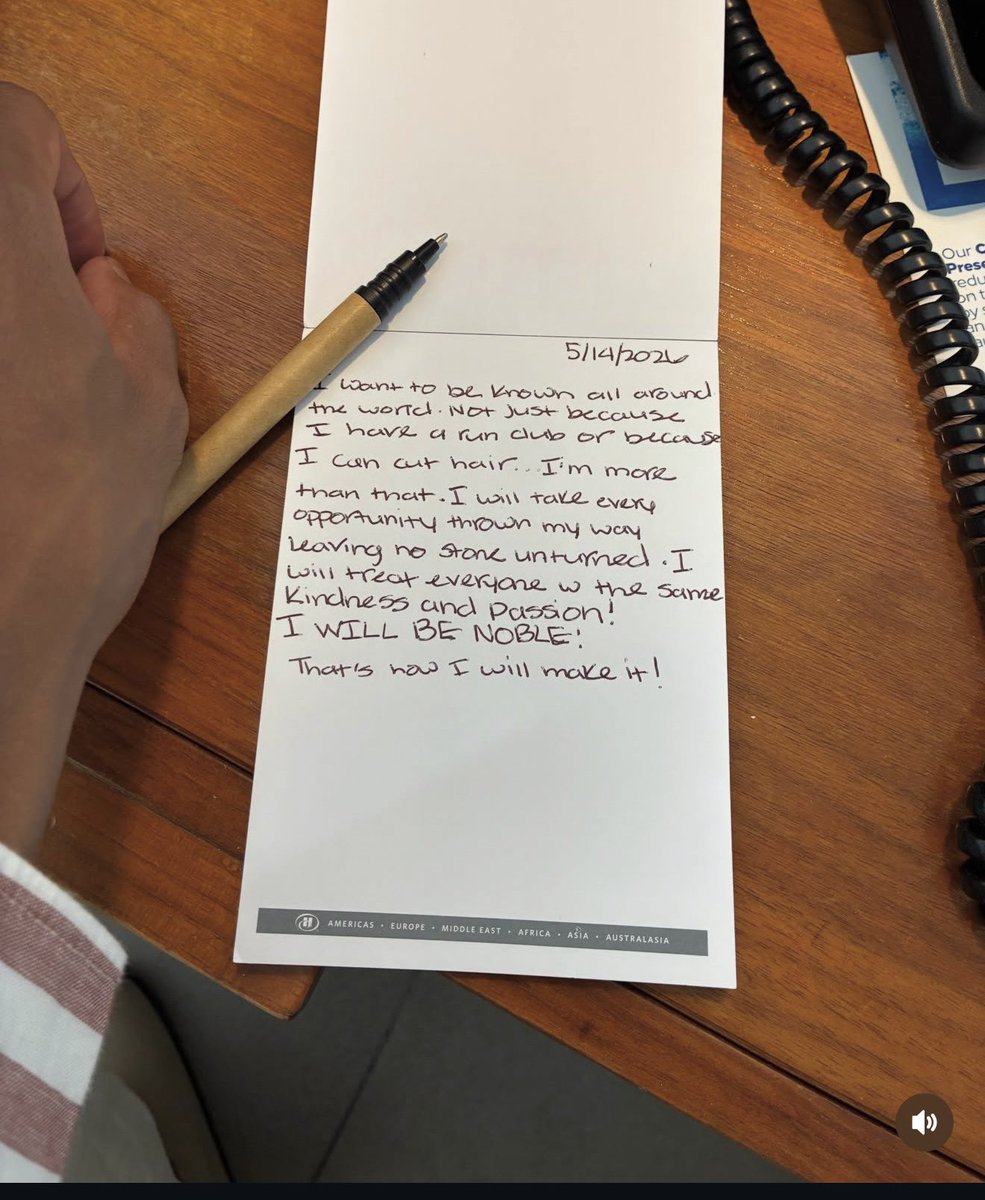 5/14/2026
I want to be known all around
the world. Not just because
I have a run club or because
I can cut hair... I'm more
than that. I will take every
opportunity thrown my way
Leaving no stone unturned. I
will treat everyone w the same
kindness and passion!
I WILL BE NOBLE!
That's how I will make it!
H AMERICAS · EUROPE · MIDDLE EAST · AFRICA · ASIA · AUSTRALASIA
Our
Prese
redu
on t
by s
an